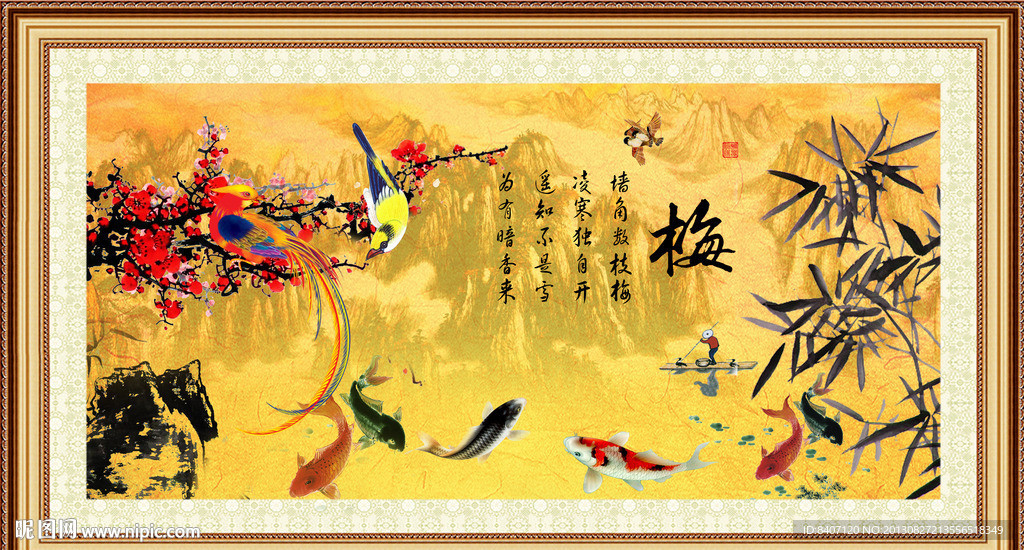 梅
墙角数枝梅
凌寒独自开
遥知不是雪
为有暗香来
昵图网 www.nipic.com
ID:8407120 NO:20130827213556518349